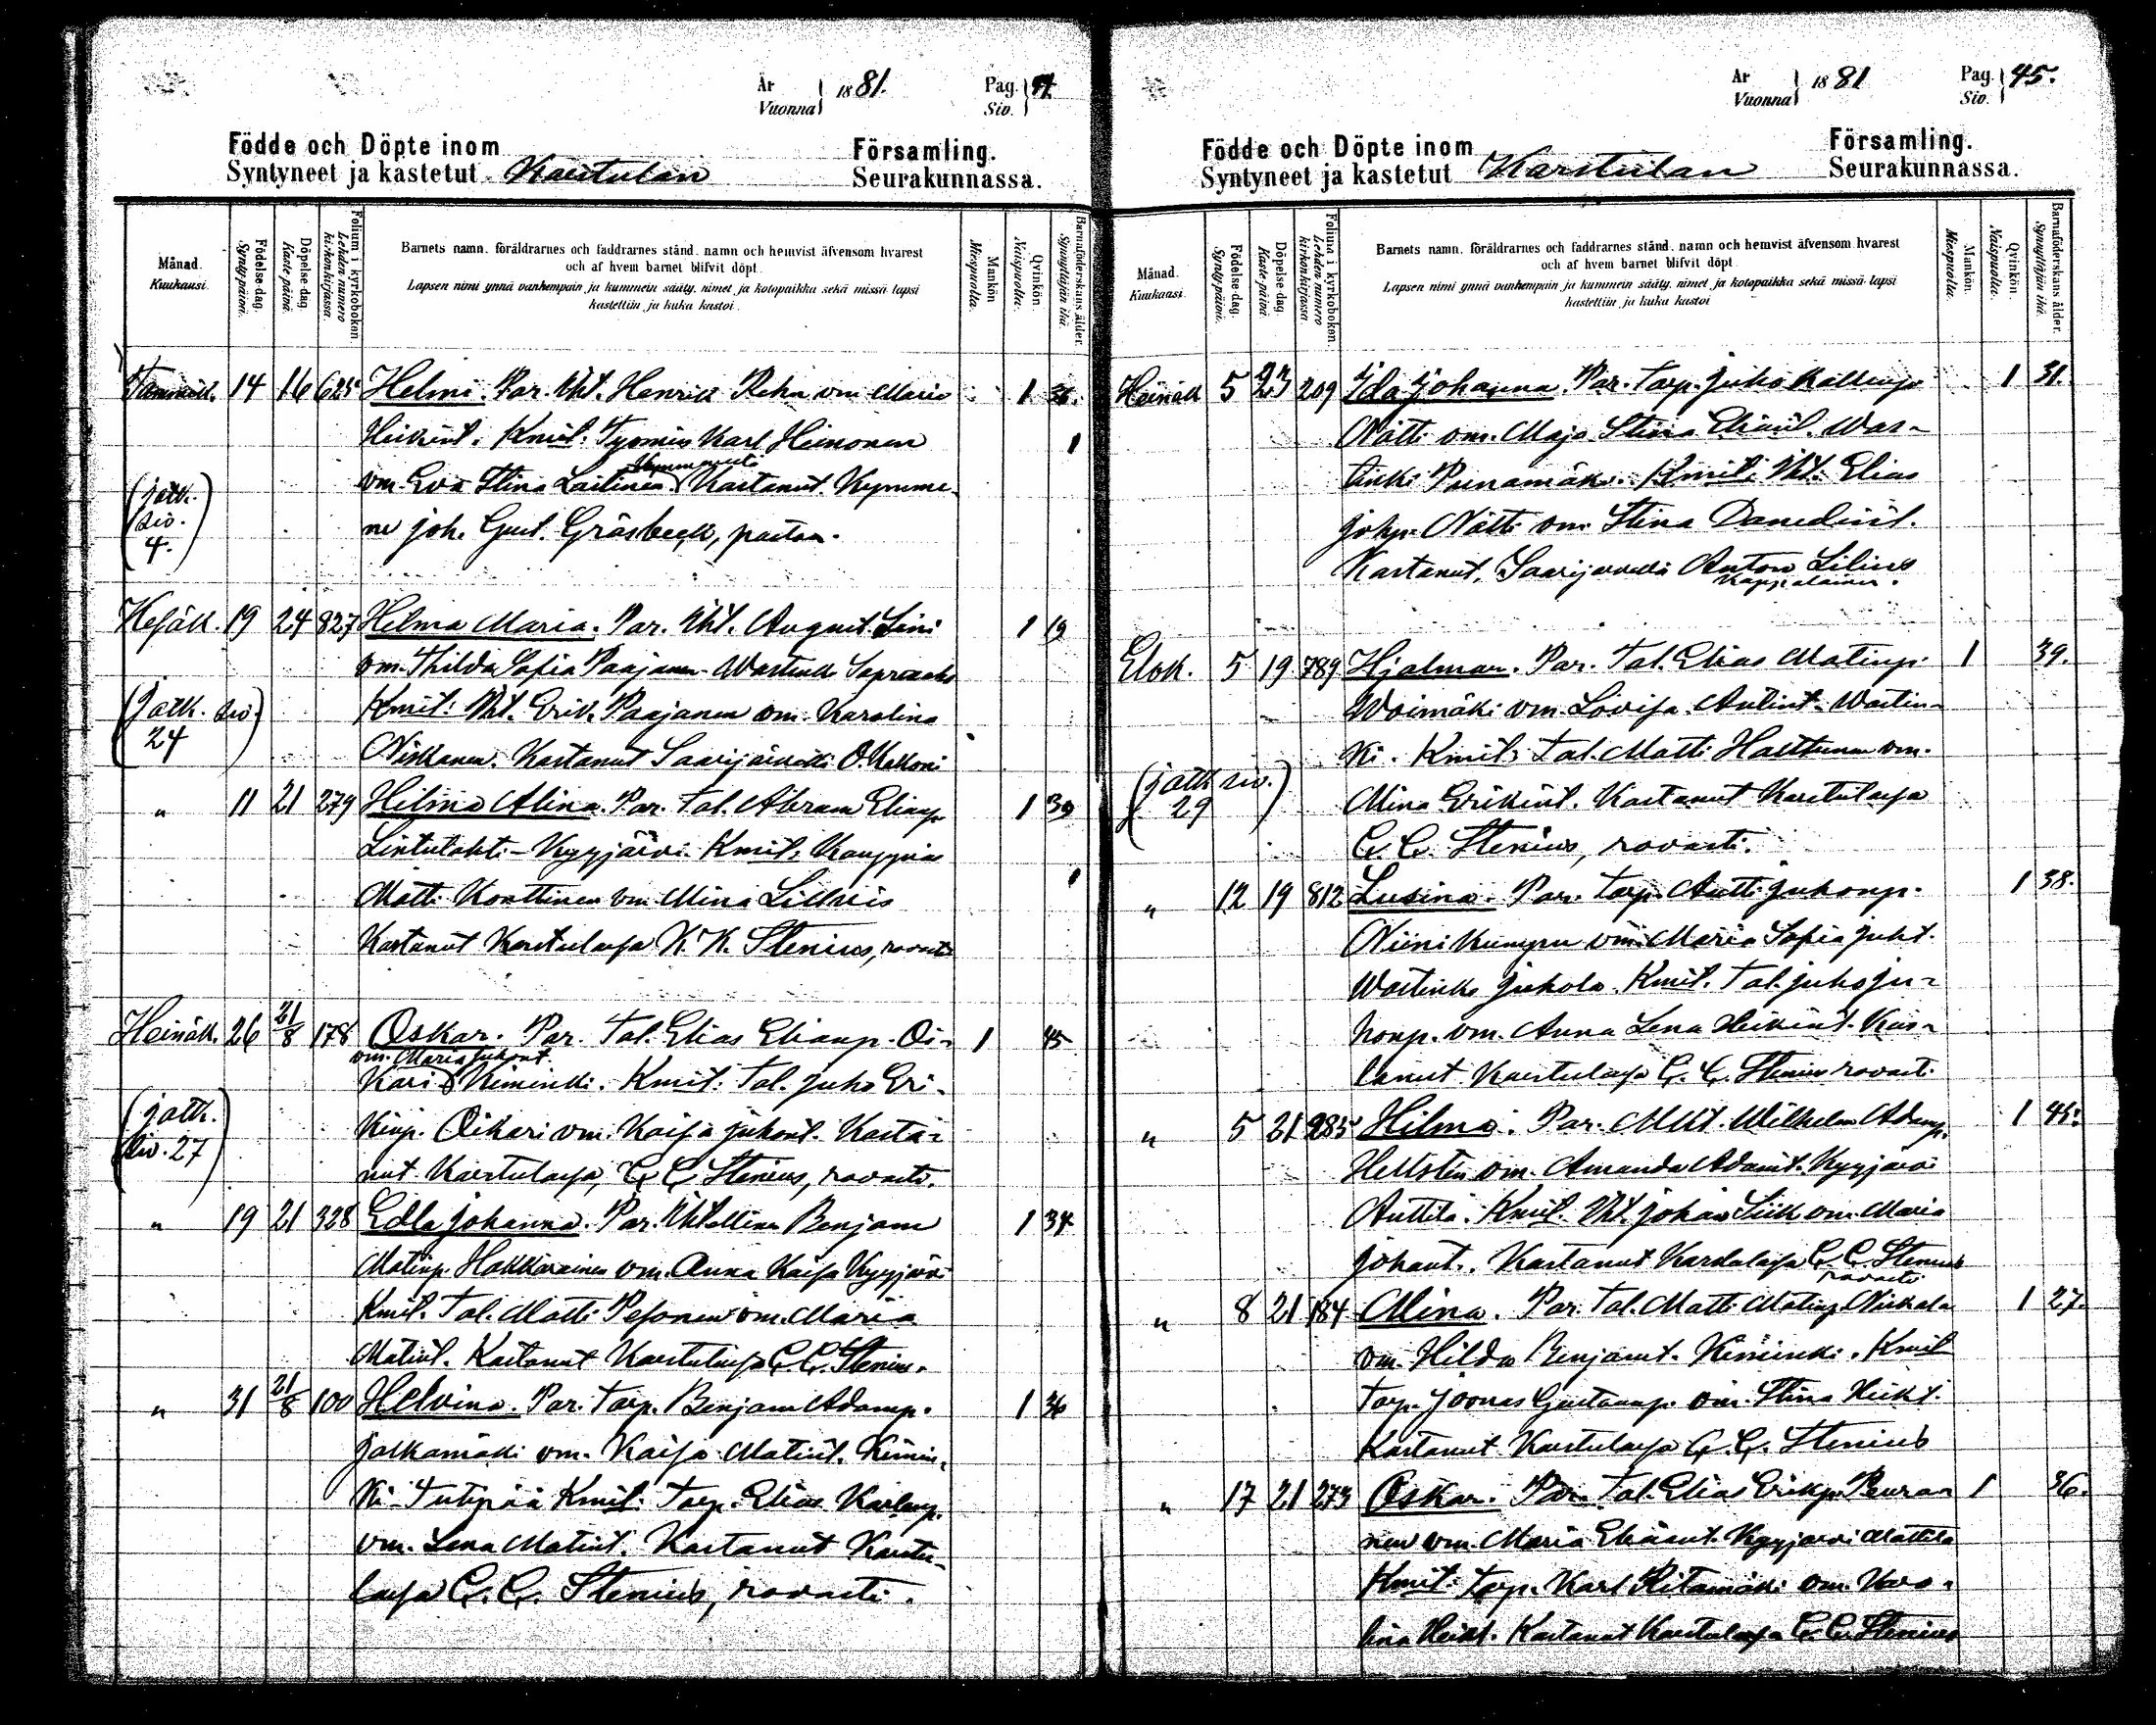 År
Vuonna 1881.
Pag.
Siv.
Födde och Döpte inom
Syntyneet ja kastetut Karstulan
Församling.
Seurakunnassa.
Månad.
Kuukausi.
Födelse dag.
Synty päivä.
Döpelse dag.
Kaste päivä.
Folium i kyrkoboken.
Lehden numero kirkonkirjassa.
Barnets namn, föräldrarnes och faddrarnes stånd, namn och hemvist äfvensom hvarest
och af hvem barnet blifvit döpt.
Lapsen nimi ynnä vanhempain ja kummein sääty, nimet ja kotopaikka sekä missä lapsi
kastettiin ja kuka kastoi.
Mankön.
Miespuolta.
Qvinkön.
Naispuolta.
Barnaföderskans ålder.
Synnyttäjän ikä.
14 16 Helmi. Par. Uht. Henrik vm Maria 1 36.
Heikint. Kmit. Tyomies Karl Heimonen
vm. Eva Stina Laitinen. Kastanut Kymme-
ne joh. Gust. Gråsbeck, pastor.
(jatk.
siv.
4.)
Kesäk. 19 24 827 Helma Maria. Par. Uht. August Lini 1 19
vm. Thilda Sofia Paajanen Wastinki
Kmit: Uht. Erik Paajanen vm. Karolina
Niskanen. Kastanut Saarijärvellä O.
(jatk. siv.
24)
" 11 21 279 Hilma Alina. Par. Tal. Abram Eliasp. 1 39
Lintulahti - Kyyjärvi. Kmit. Kauppias
Matti Konttinen vm Mina
Kastanut Karstulassa K. K. Stenius, rovasti
Heinäk. 26 21/8 178 Oskar. Par. Tal. Elias Eliasp. Oi- 1 45
vm. Maria Juhont.
kari Kiminki. Kmit: Tal. Juho Eri-
kinp. Oikari vm. Kaisa Juhont. Kasta-
nut Karstulassa, C. C. Stenius, rovasti.
(jatk.
siv. 27)
" 19 21 328 Edla Johanna. Par. Benjam 1 34
Matinp. Hakkarainen vm. Anna Kaisa Kyyjärvi
Kmit. Tal. Matti Pesonen vm. Maria
Matint. Kastanut Karstulassa C. C. Stenius.
" 31 21/8 100 Helvina. Par. Torp. Benjam Adamp. 1 36
Jalkamäki vm. Kaisa Matint. Kimin-
ki Kmit: Torp. Elias
vm. Lena Matint. Kastanut Karstu-
lassa C. C. Stenius, rovasti.
År
Vuonna 1881
Pag.
Siv. 45.
Födde och Döpte inom
Syntyneet ja kastetut Karstulan
Församling.
Seurakunnassa.
Månad.
Kuukausi.
Födelse dag.
Synty päivä.
Döpelse dag.
Kaste päivä.
Folium i kyrkoboken.
Lehden numero kirkonkirjassa.
Barnets namn, föräldrarnes och faddrarnes stånd, namn och hemvist äfvensom hvarest
och af hvem barnet blifvit döpt.
Lapsen nimi ynnä vanhempain ja kummein sääty, nimet ja kotopaikka sekä missä lapsi
kastettiin ja kuka kastoi
Mankön.
Miespuolta.
Qvinkön.
Naispuolta.
Barnaföderskans ålder.
Synnyttäjän ikä.
Heinäk 5 23 209 Ida Johanna. Par. Torp. Juho 1 31.
Nätti vm. Maja Stina Eliaint. Was-
tinki Kmit: Uht. Elias
Nätti vm. Stina
Kastanut, Saarijärvellä Anton Lilius
Kappalainen.
Elok. 5 19 789 Hjalmar. Par. Tal. Elias Matinp. 1 39.
Woimäki vm. Lovisa Antint. Wastin-
ki. Kmit: Tal. Matti Harttunen vm.
Mina Erikint. Kastanut Karstulassa
C. C. Stenius, rovasti.
(jatk siv.
29)
" 12 19 812 Lusina. Par. Torp. Antti Juhonp. 1 38.
Niinikumpu vm. Maria Sofia Juht.
Wastinki Juhola. Kmit. Tal. Juho Ju-
honp. vm. Anna Lena Heikint. Kas-
tanut Karstulassa C. C. Stenius rovasti.
" 5 21 285 Hilma. Par. Wilhelm Adamp. 1 45.
Hellsten vm. Amanda Adamt. Kyyjärvi
Anttila. Kmit. Uht. Johan vm. Maria
Johant. Kastanut Karstulassa C. C. Stenius
rovasti
" 8 21 184 Mina. Par. Tal. Matti Matinp. 1 27.
vm. Hilda Benjamt. Kiminki. Kmit
Torp. Joonas Gustavsp. vm. Stina Heikt.
Kastanut Karstulassa C. C. Stenius
" 17 21 273 Oskar. Par. Tal. Elias Erikp. Peura- 1 36.
nen vm. Maria Eliaint. Kyyjärvi Mattila
Kmit: Torp. Karl Ritamäki vm. Karo-
lina Heikt. Kastanut Karstulassa C. C. Stenius